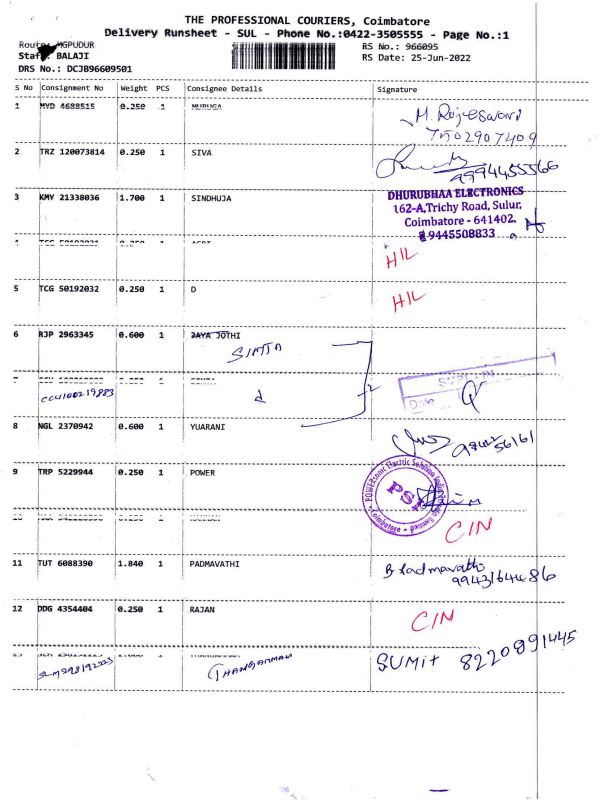 THE PROFESSIONAL COURIERS, Coimbatore
Delivery Runsheet - SUL - Phone No.:0422-3505555 - Page No.:1
Route: MGPUDUR
RS No.: 966095
Staff: BALAJI
RS Date: 25-Jun-2022
DRS No.: DCJB96609501
S No Consignment No Weight PCS Consignee Details Signature
1 MYD 4688515 0.250 1 MURUGA
M. Rajeswari
7502907409
2 TRZ 120073814 0.250 1 SIVA
9994455566
3 KMY 21338036 1.700 1 SINDHUJA
DHURUBHAA ELECTRONICS
162-A, Trichy Road, Sulur,
Coimbatore - 641402.
9445508833
H/L
5 TCG 50192032 0.250 1 D
H/L
6 RJP 2963345 0.600 1 JAYA JOTHI
d
8 NGL 2370942 0.600 1 YUARANI
9 TRP 5229944 0.250 1 POWER
PSI
Coimbatore
C/N
11 TUT 6088390 1.840 1 PADMAVATHI
Padmavathi
9943164486
12 DDG 4354404 0.250 1 RAJAN
C/N
THANGAMMAN
SUMit 8220891445